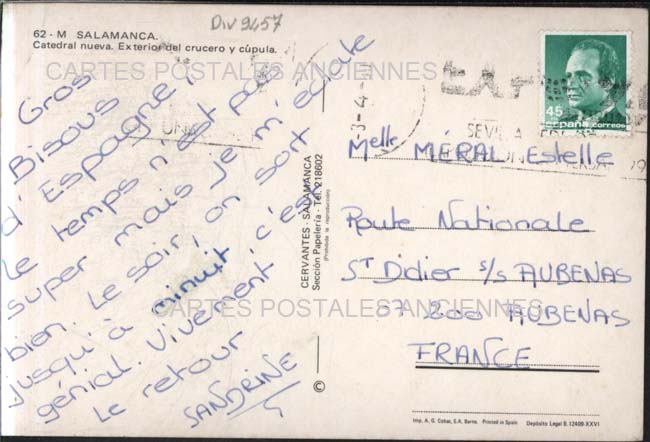 Div 9457
62 - M SALAMANCA.
Catedral nueva. Exterior del crucero y cúpula.
CARTES POSTALES ANCIENNES
Gros
Bisous
d'Espagne,
Le temps n'est pas
super mais je m'éclate
bien. Le soir, on sort
jusqu'à minuit c'est
génial. Vivement
Le retour
SANDRINE
CERVANTES - SALAMANCA
Sección Papelería - Tel. 218602
(Prohibida la reproducción)
©
45
españa correos
Melle MÉRAL Estelle
Route Nationale
ST Didier s/s AUBENAS
07 200 AUBENAS
FRANCE
CARTES POSTALES ANCIENNES
Imp. A. G. Cobas, S.A. Barna. Printed in Spain Depósito Legal B. 12409-XXVI